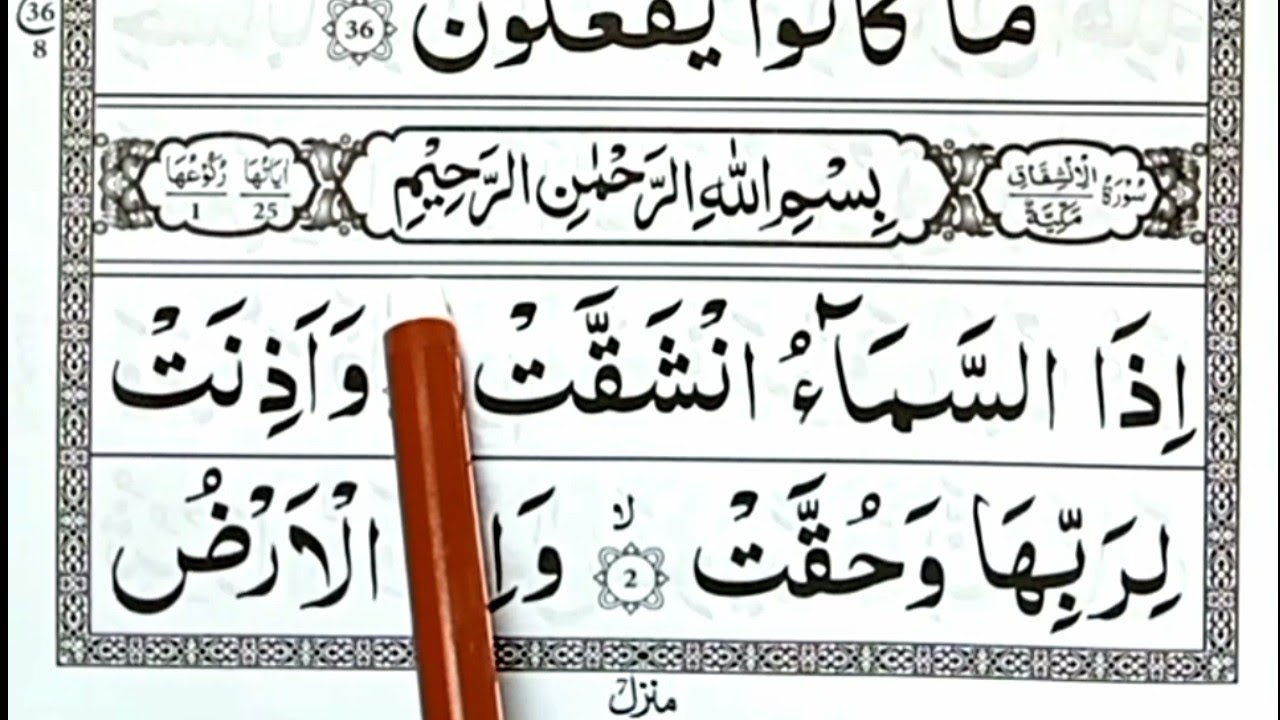 36
8
ما كانوا يفعلون 36
سُوْرَةُ الْاِنْشِقَاقِ مَكِّيَّةٌ بِسْمِ اللّٰهِ الرَّحْمٰنِ الرَّحِيْمِ اٰيَاتُهَا 25 رُكُوْعُهَا 1
اِذَا السَّمَآءُ انْشَقَّتْ وَاَذِنَتْ
لِرَبِّهَا وَحُقَّتْ لا 2 الْاَرْضُ
منزل